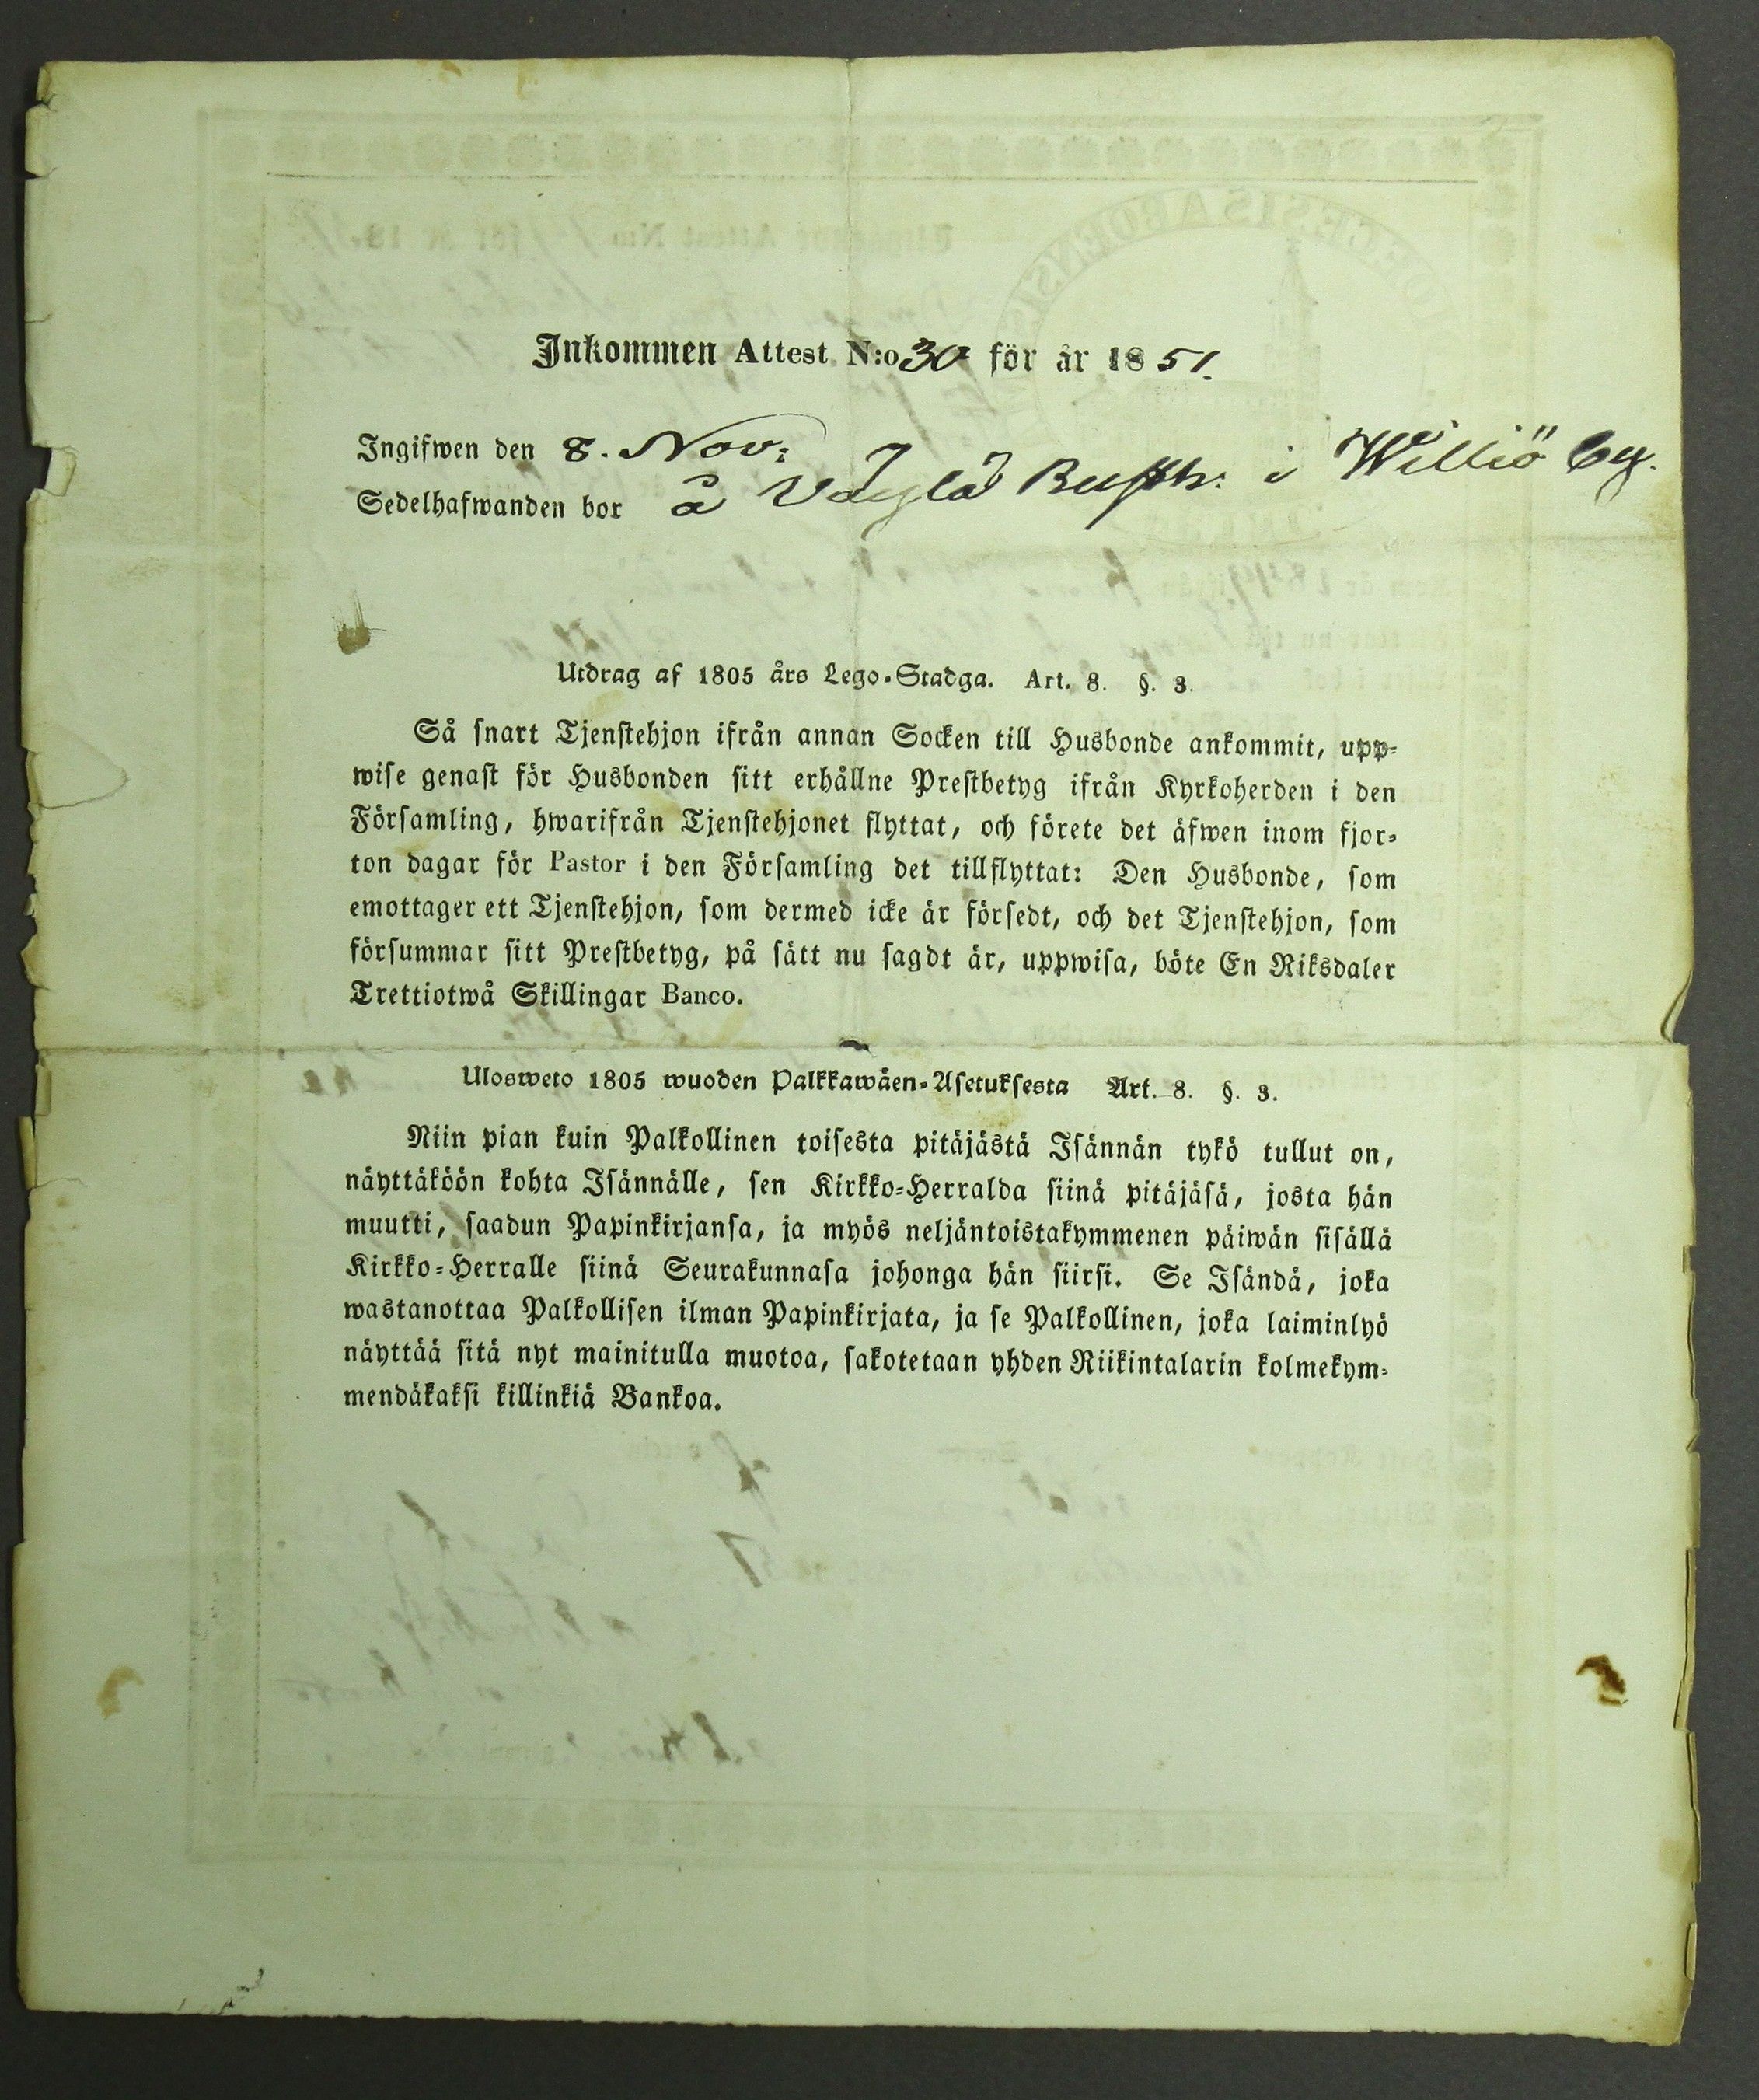 Inkommen Attest N:o 30 för år 1851.
Ingifwen den 8. Nov:
Sedelhafwanden bor å Voglä Rusth: i Williö by.
Utdrag af 1805 års Lego-Stadga. Art. 8. §. 3.
Så snart Tjenstehjon ifrån annan Socken till Husbonde ankommit, upp-
wise genast för Husbonden sitt erhållne Prestbetyg ifrån Kyrkoherden i den
Församling, hwarifrån Tjenstehjonet flyttat, och förete det äfwen inom fjor-
ton dagar för Pastor i den Församling det tillflyttat: Den Husbonde, som
emottager ett Tjenstehjon, som dermed icke är försedt, och det Tjenstehjon, som
försummar sitt Prestbetyg, på sätt nu sagdt är, uppwisa, böte En Riksdaler
Trettiotwå Skillingar Banco.
Ulosweto 1805 wuoden Palkkawäen-Asetuksesta Art. 8. §. 3.
Niin pian kuin Palkollinen toisesta pitäjästä Isännän tykö tullut on,
näyttäköön kohta Isännälle, sen Kirkko-Herralda siinä pitäjäsä, josta hän
muutti, saadun Papinkirjansa, ja myös neljäntoistakymmenen päiwän sisällä
Kirkko-Herralle siinä Seurakunnasa johonga hän siirsi. Se Isändä, joka
wastanottaa Palkollisen ilman Papinkirjata, ja se Palkollinen, joka laiminlyö
näyttää sitä nyt mainitulla muotoa, sakotetaan yhden Riikintalarin kolmekym-
mendäkaksi killinkiä Bankoa.